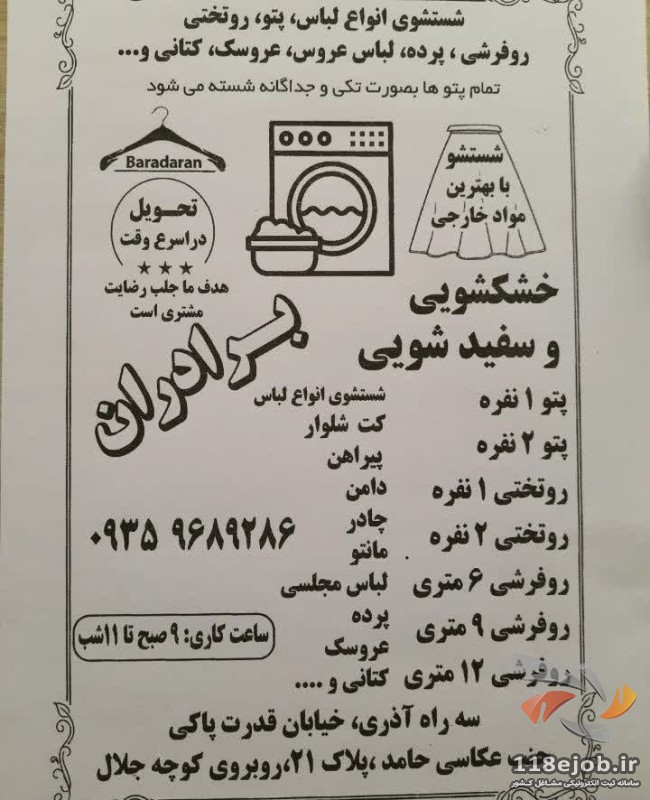 شستشوی انواع لباس، پتو، روتختی
روفرشی، پرده، لباس عروس، عروسک، کتانی و...
تمام پتو ها بصورت تکی و جداگانه شسته می شود
Baradaran
تحویل
دراسرع وقت
هدف ما جلب رضایت
مشتری است
شستشو
با بهترین
مواد خارجی
خشکشویی
و سفید شویی
برادران
پتو ۱ نفره
پتو ۲ نفره
روتختی ۱ نفره
روتختی ۲ نفره
روفرشی ۶ متری
روفرشی ۹ متری
روفرشی ۱۲ متری
شستشوی انواع لباس
کت شلوار
پیراهن
دامن
چادر
مانتو
لباس مجلسی
پرده
عروسک
کتانی و ....
۰۹۳۵ ۹۶۸۹۲۸۶
ساعت کاری: ۹ صبح تا ۱۱شب
سه راه آذری، خیابان قدرت پاکی
جنب عکاسی حامد ،پلاک ۲۱،روبروی کوچه جلال
118ejob.ir
سامانه ثبت الکترونیکی مشاغل کشور